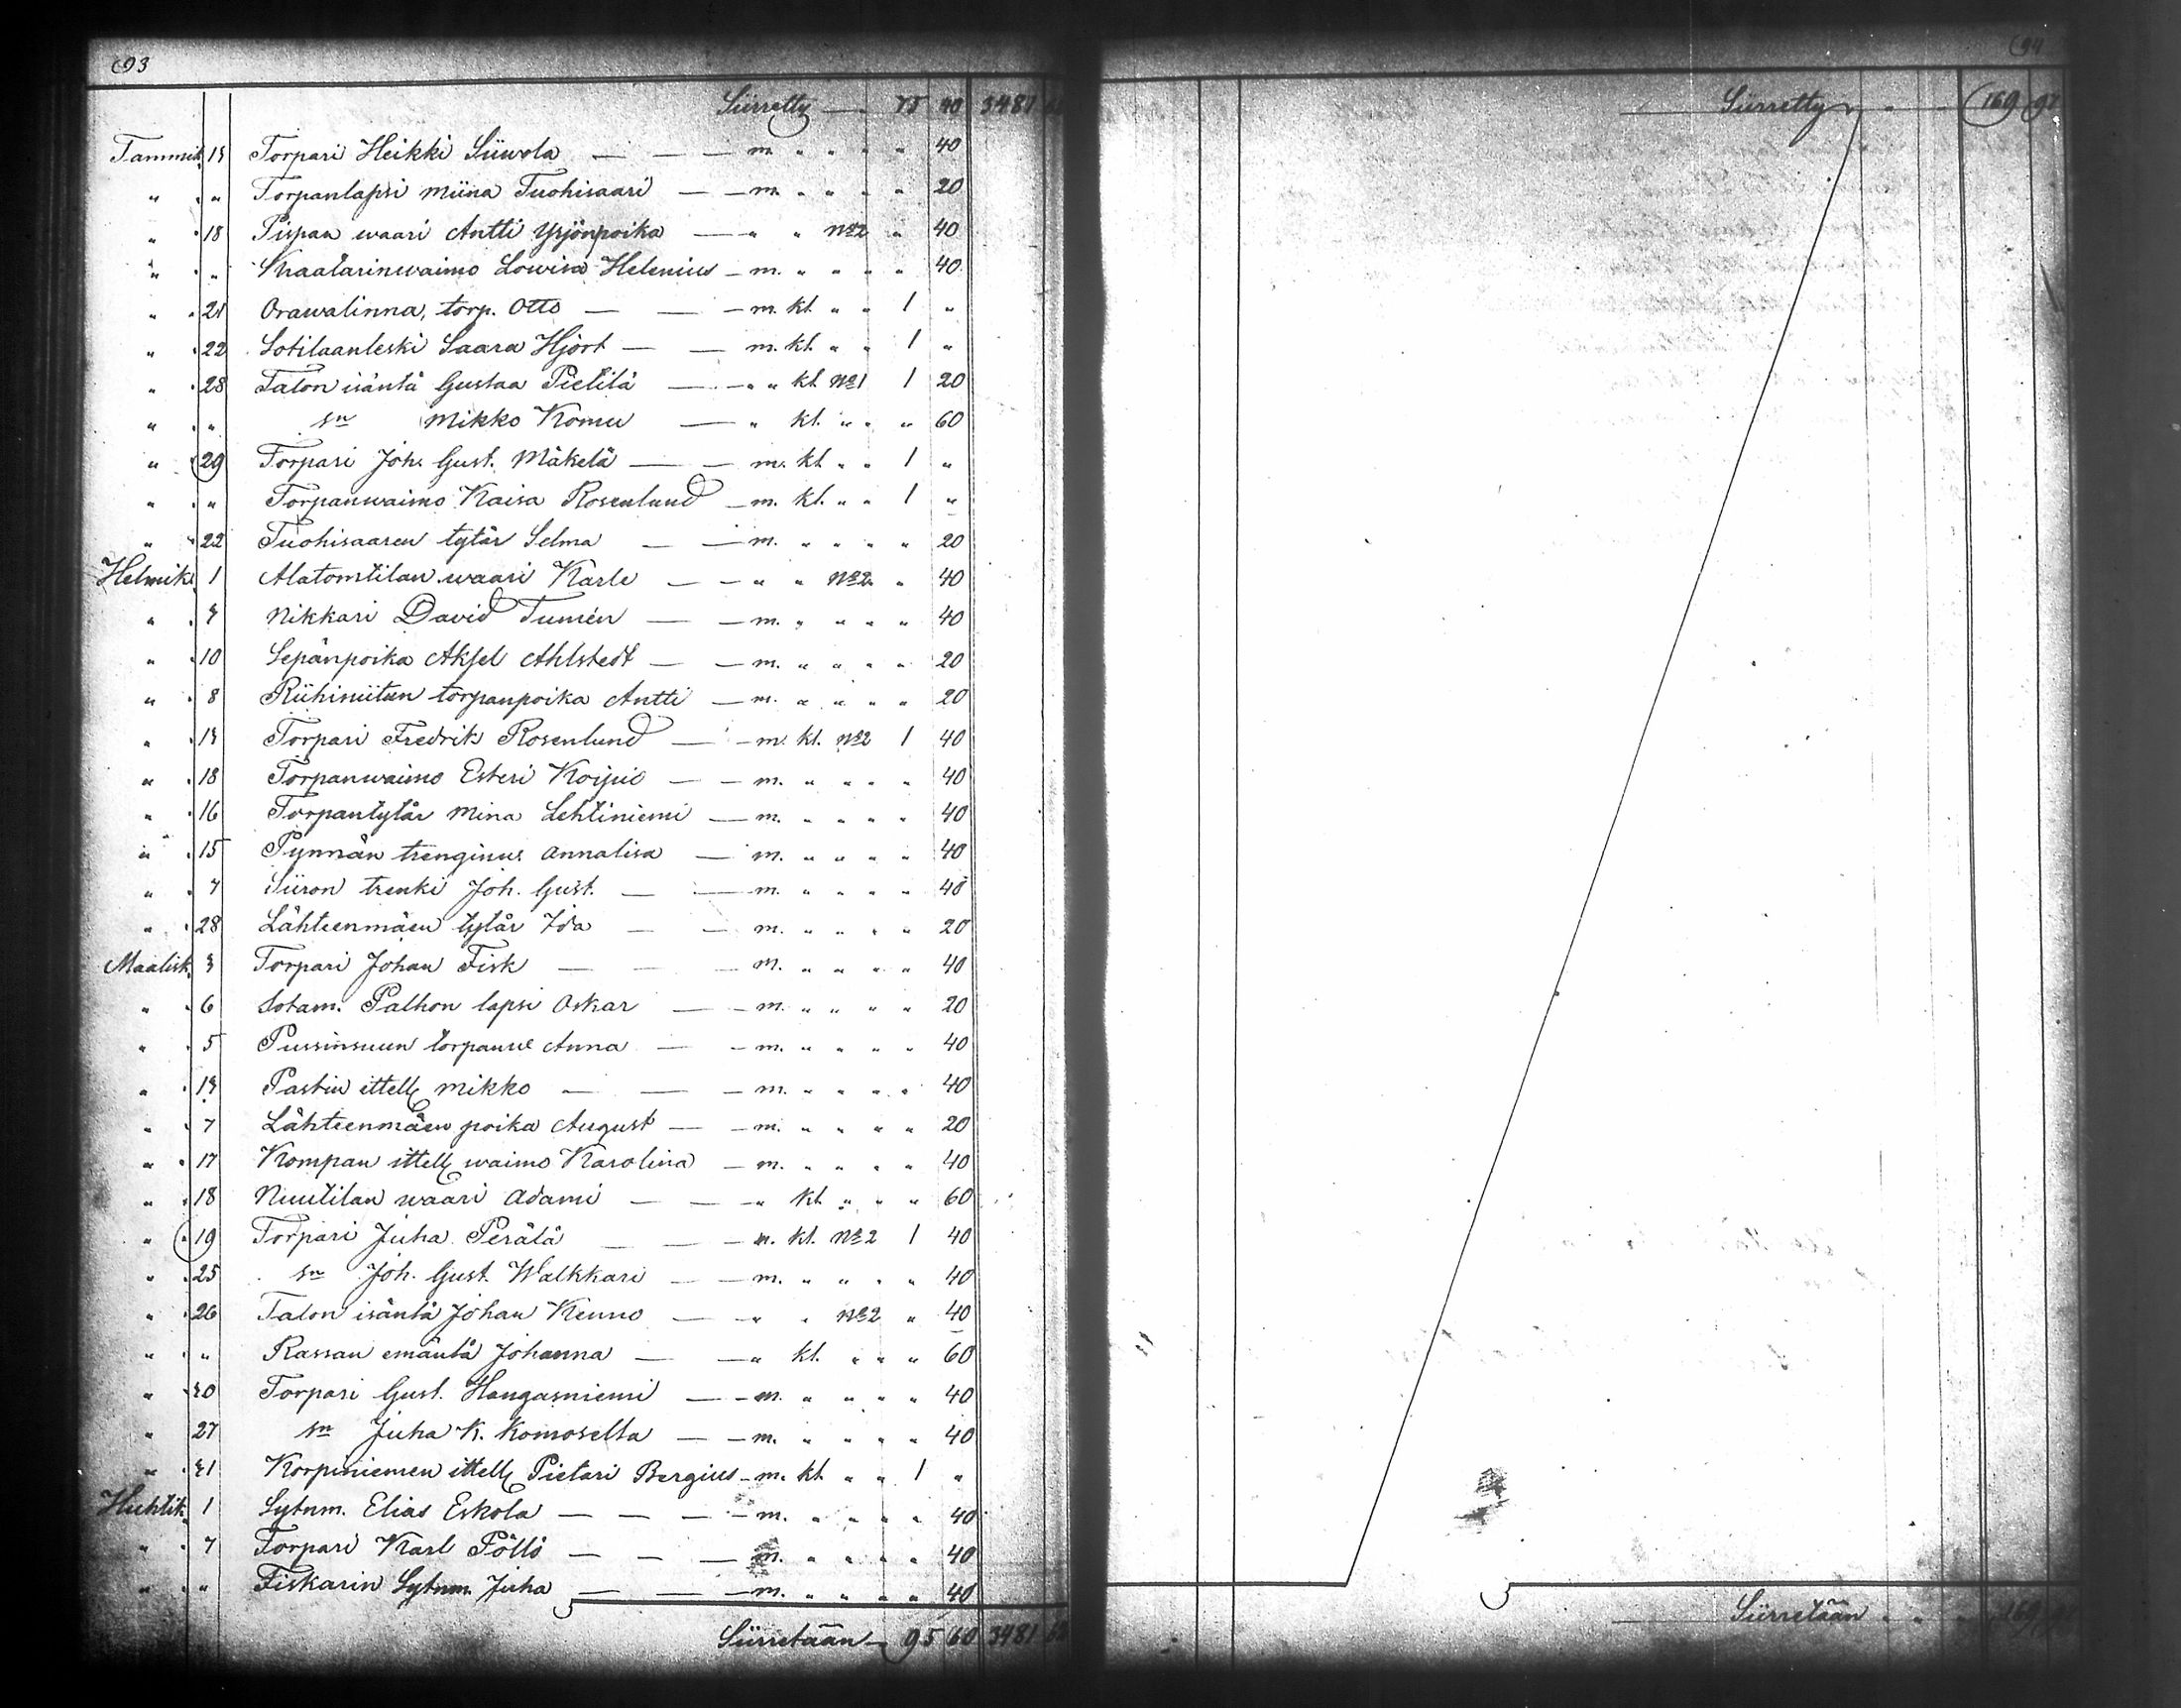 93
Siirretty — 75 40 3481
Tammik. 13 Torpari Heikki Siiwola — — — m. " " " " 40
" " " Torpanlapsi Miina Tuohisaari — — m. " " " " 20
" " 18 Pispan waari Antti Yrjönpoika — " " No2 " 40
" " " Skaatarinwaimo Lowisa Helenius — m. " " " " 40
" " 21 Orawalinna, torp. Otto — — — m. kl. " " 1 "
" " 22 Sotilaanleski Saara Hjort — — m. kl. " " 1 "
" " 28 Talon isäntä Gustaa Pietilä — — " " kl No1 1 20
" " " sn Mikko Komu — " kl. " " " 60
" " 29 Torpari Joh. Gust. Mäkelä — — m. kl. " " 1 "
" " " Torpanwaimo Kaisa Rosenlund — m. kl. " " 1 "
" " 22 Tuohisaaren tytär Selma — — m. " " " " 20
Helmik. 1 Alatomtilan waari Karle — — " " No2 " 40
" " 3 Nikkari David Tumén — — m. " " " " 40
" " 10 Sepänpoika Aksel Ahlstedt — — m. " " " " 20
" " 8 Riihiniitun torpanpoika Antti — m. " " " " 20
" " 13 Torpari Fredrik Rosenlund — — m. kl. No2 1 40
" " 18 Torpanwaimo Esteri Koipio — — m. " " " " 40
" " 16 Torpantytär Mina Lehtiniemi — m. " " " " 40
" " 15 Pynnän Annalisa — m. " " " " 40
" " 7 Siiron trenki Joh. Gust. — — m. " " " " 40
" " 28 Lähteenmäen tytär Ida — — m. " " " " 20
Maalisk. 3 Torpari Johan Fisk — — — m. " " " " 40
" " 6 Sotam. Palhon lapsi Oskar — — m. " " " " 20
" " 5 Pussinsuun Anna — — m. " " " " 40
" " 13 Pastin ittell. Mikko — — — m. " " " " 40
" " 7 Lähteenmäen poika August — — m. " " " " 20
" " 17 Kompan ittell. waimo Karolina — m. " " " " 40
" " 18 Nuutilan waari Adami — — " kl. " " " 60
" " 19 Torpari Juha Perälä — — m. kl. No2 1 40
" " 25 sn Joh. Gust. Walkkari — — m. " " " " 40
" " 26 Talon isäntä Johan Kenno — — " " No2 " 40
" " " Rassan emäntä Johanna — — " kl. " " " 60
" " 30 Torpari Gust. Hangasniemi — — m. " " " " 40
" 27 sn Juha K. Komoselta — — m. " " " " 40
" " 31 Korpiniemen ittell. Pietari Bergius — m. kl. " " 1 "
Huhtik. 1 Sytnm. Elias Eskola — — — m. " " " " 40
" " 7 Torpari Karl Pöllö — — — m. " " " " 40
" " " Fiskarin Sytnm. Juha — — — m. " " " " 40
Siirretään — 95 60 3481
94
Siirretty " " — 169 97
Siirretään " " " 169